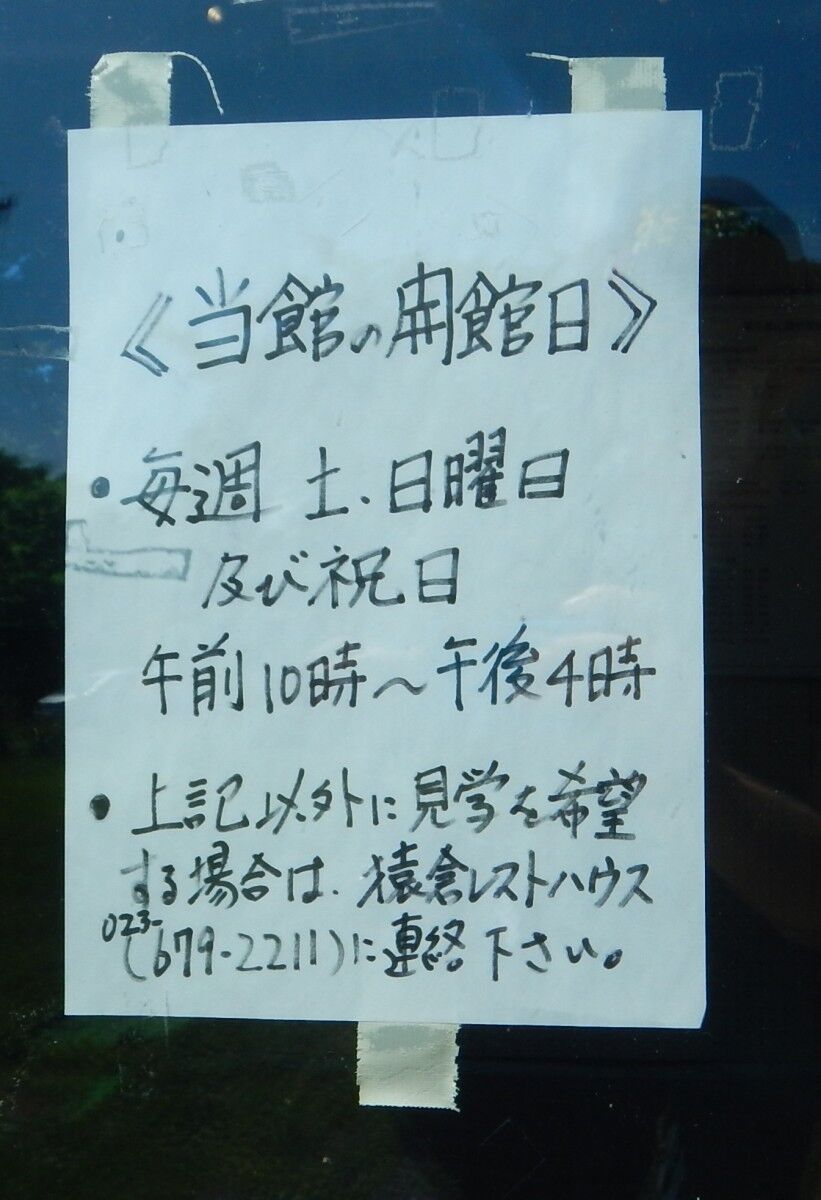 《当館の開館日》
• 毎週 土、日曜日
及び祝日
午前10時〜午後4時
• 上記以外に見学を希望
する場合は、猿倉レストハウス
023-
(679-2211)に連絡下さい。